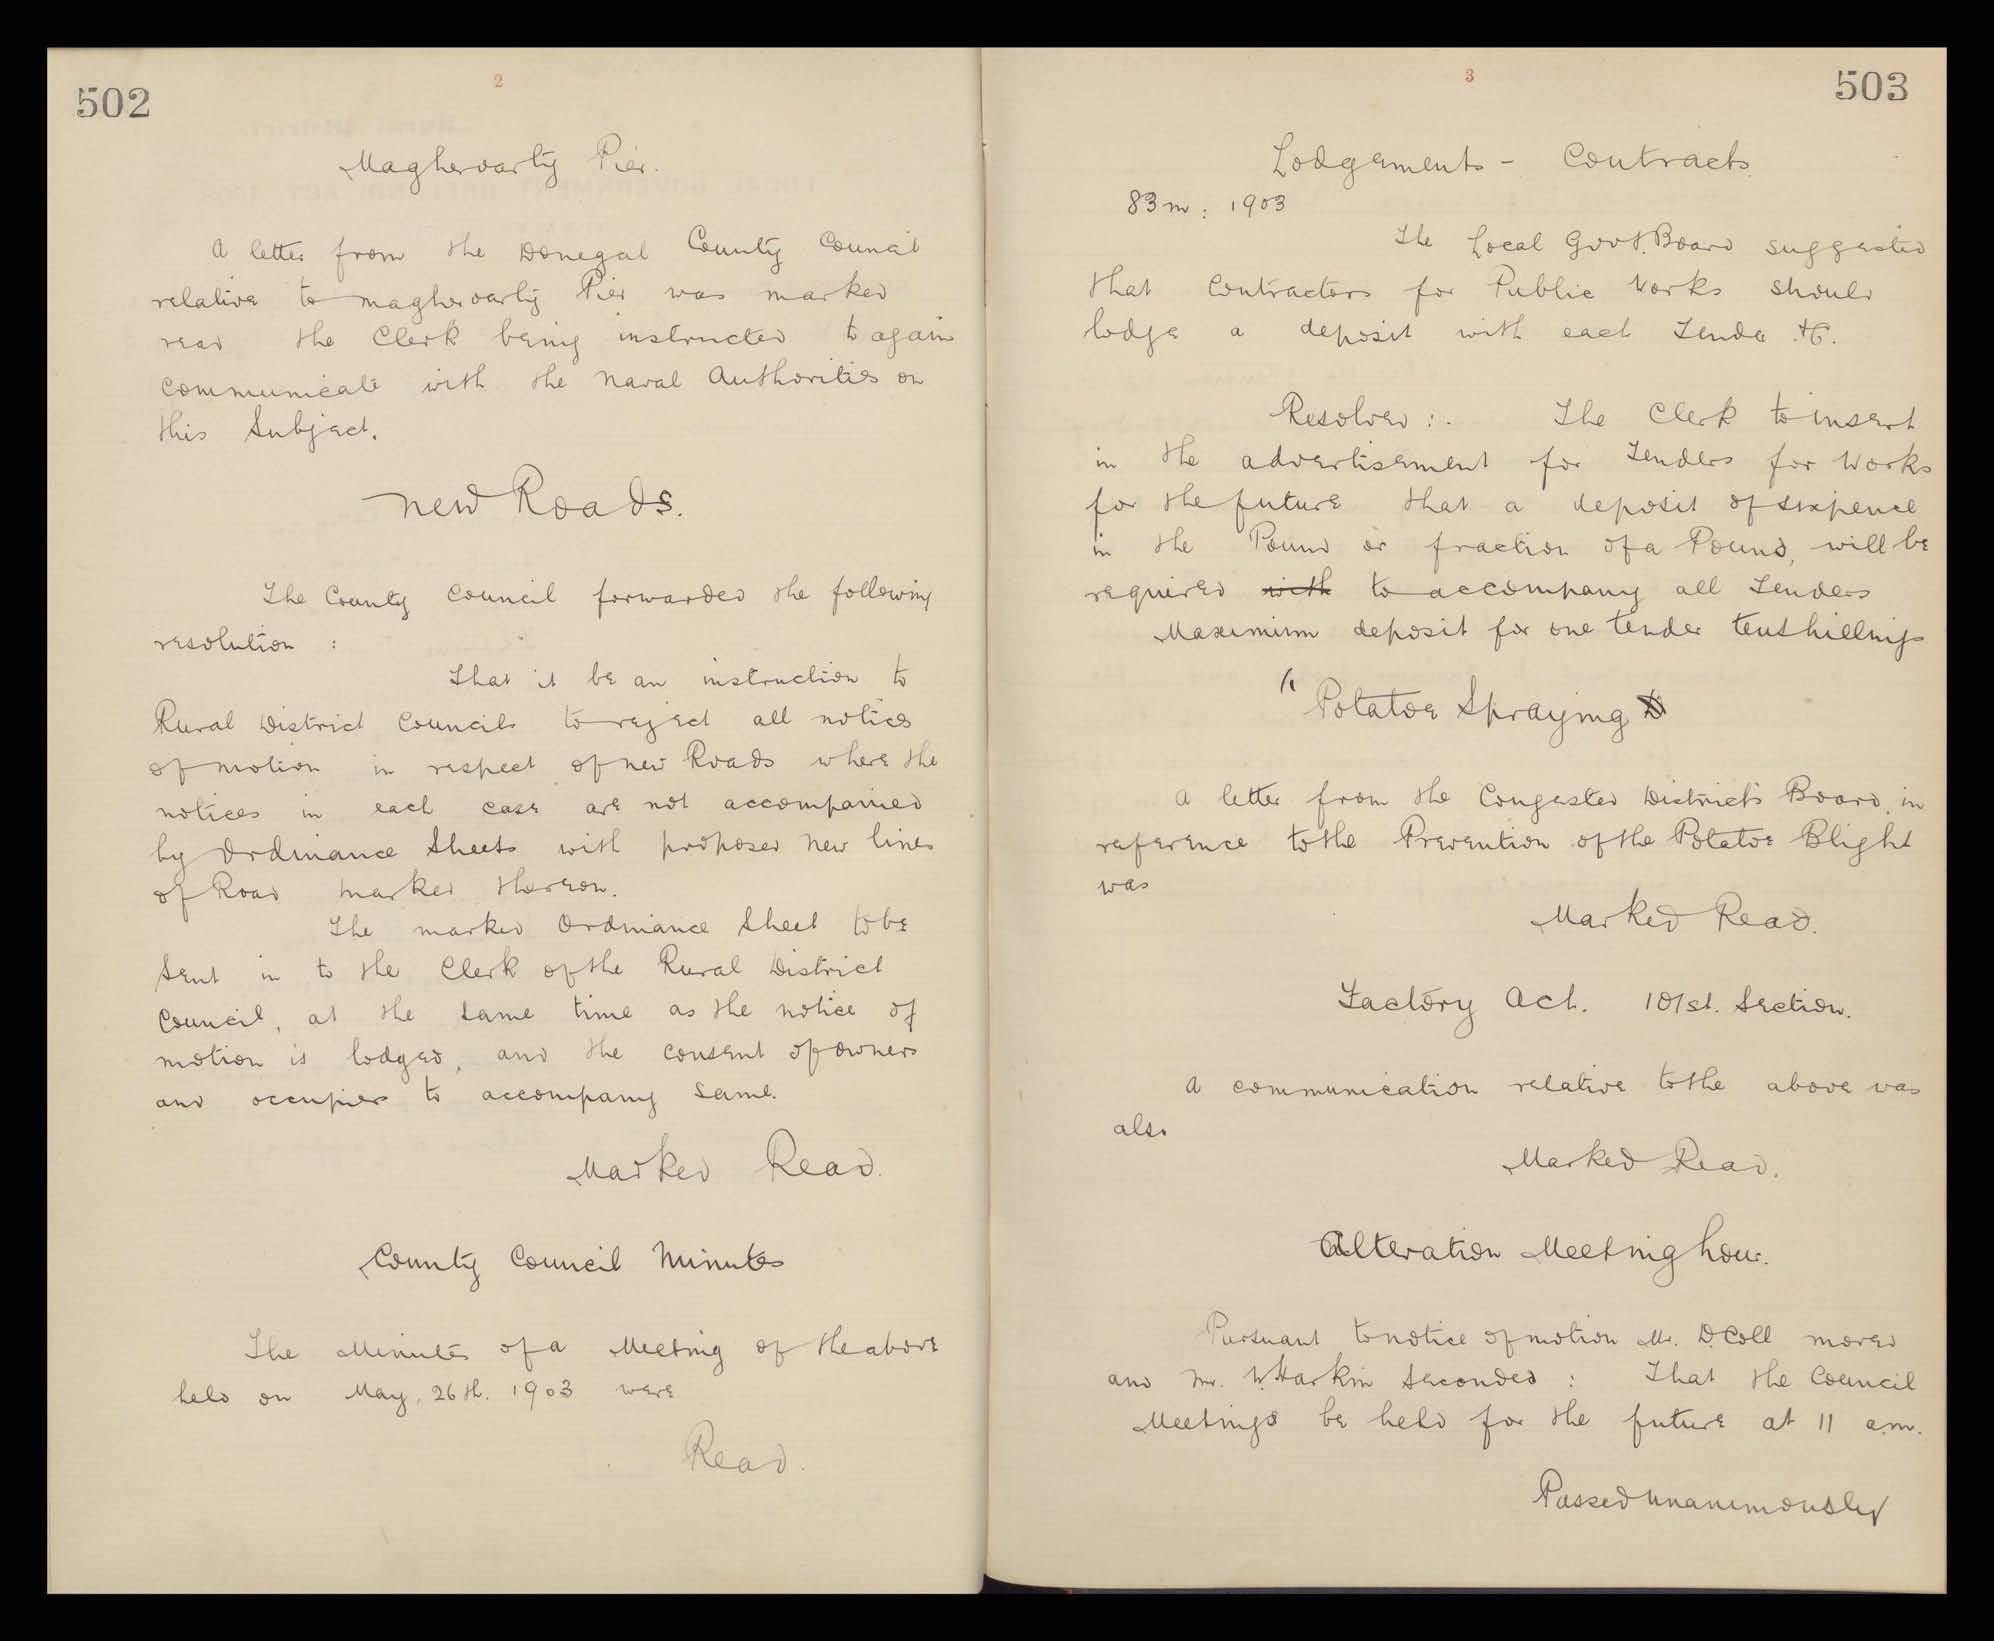 502
2
Magheroarty Pier.
A letter from the Donegal County Council
relative to Magheroarty Pier was marked
read the Clerk being instructed to again
communicate with the Naval Authorities on
this Subject.
New Roads.
The County Council forwarded the following
resolution :
That it be an instruction to
Rural District Councils to reject all notices
of motion in respect of new Roads where the
notices in each case are not accompanied
by Ordinance Sheets with proposed new lines
of Road marked thereon.
The marked Ordinance Sheet to be
sent in to the Clerk of the Rural District
Council, at the same time as the notice of
motion is lodged, and the consent of owners
and occupiers to accompany same.
Marked Read.
County Council Minutes
The Minutes of a Meeting of the above
held on May, 26th. 1903 were
Read.
503
3
Lodgements - Contracts
83m : 1903
The Local Govt. Board suggested
that Contractors for Public Works should
lodge a deposit with each Tender &c.
Resolved :. The Clerk to insert
in the advertisement for Tenders for Works
for the future that a deposit of sixpence
in the Pound or fraction of a Pound, will be
required with to accompany all Tenders
Maximum deposit for one tender tenshillings
" Potatoe Spraying
A letter from the Congested District's Board, in
reference to the Prevention of the Potatoe Blight
was
Marked Read.
Factory Act. 101st. Section.
A communication relative to the above was
also
Marked Read.
Alteration Meeting hour.
Pursuant to notice of motion Mr. D. Coll moved
and Mr. W. Harkin Seconded : That the Council
Meetings be held for the future at 11 a.m.
Passed unanimously